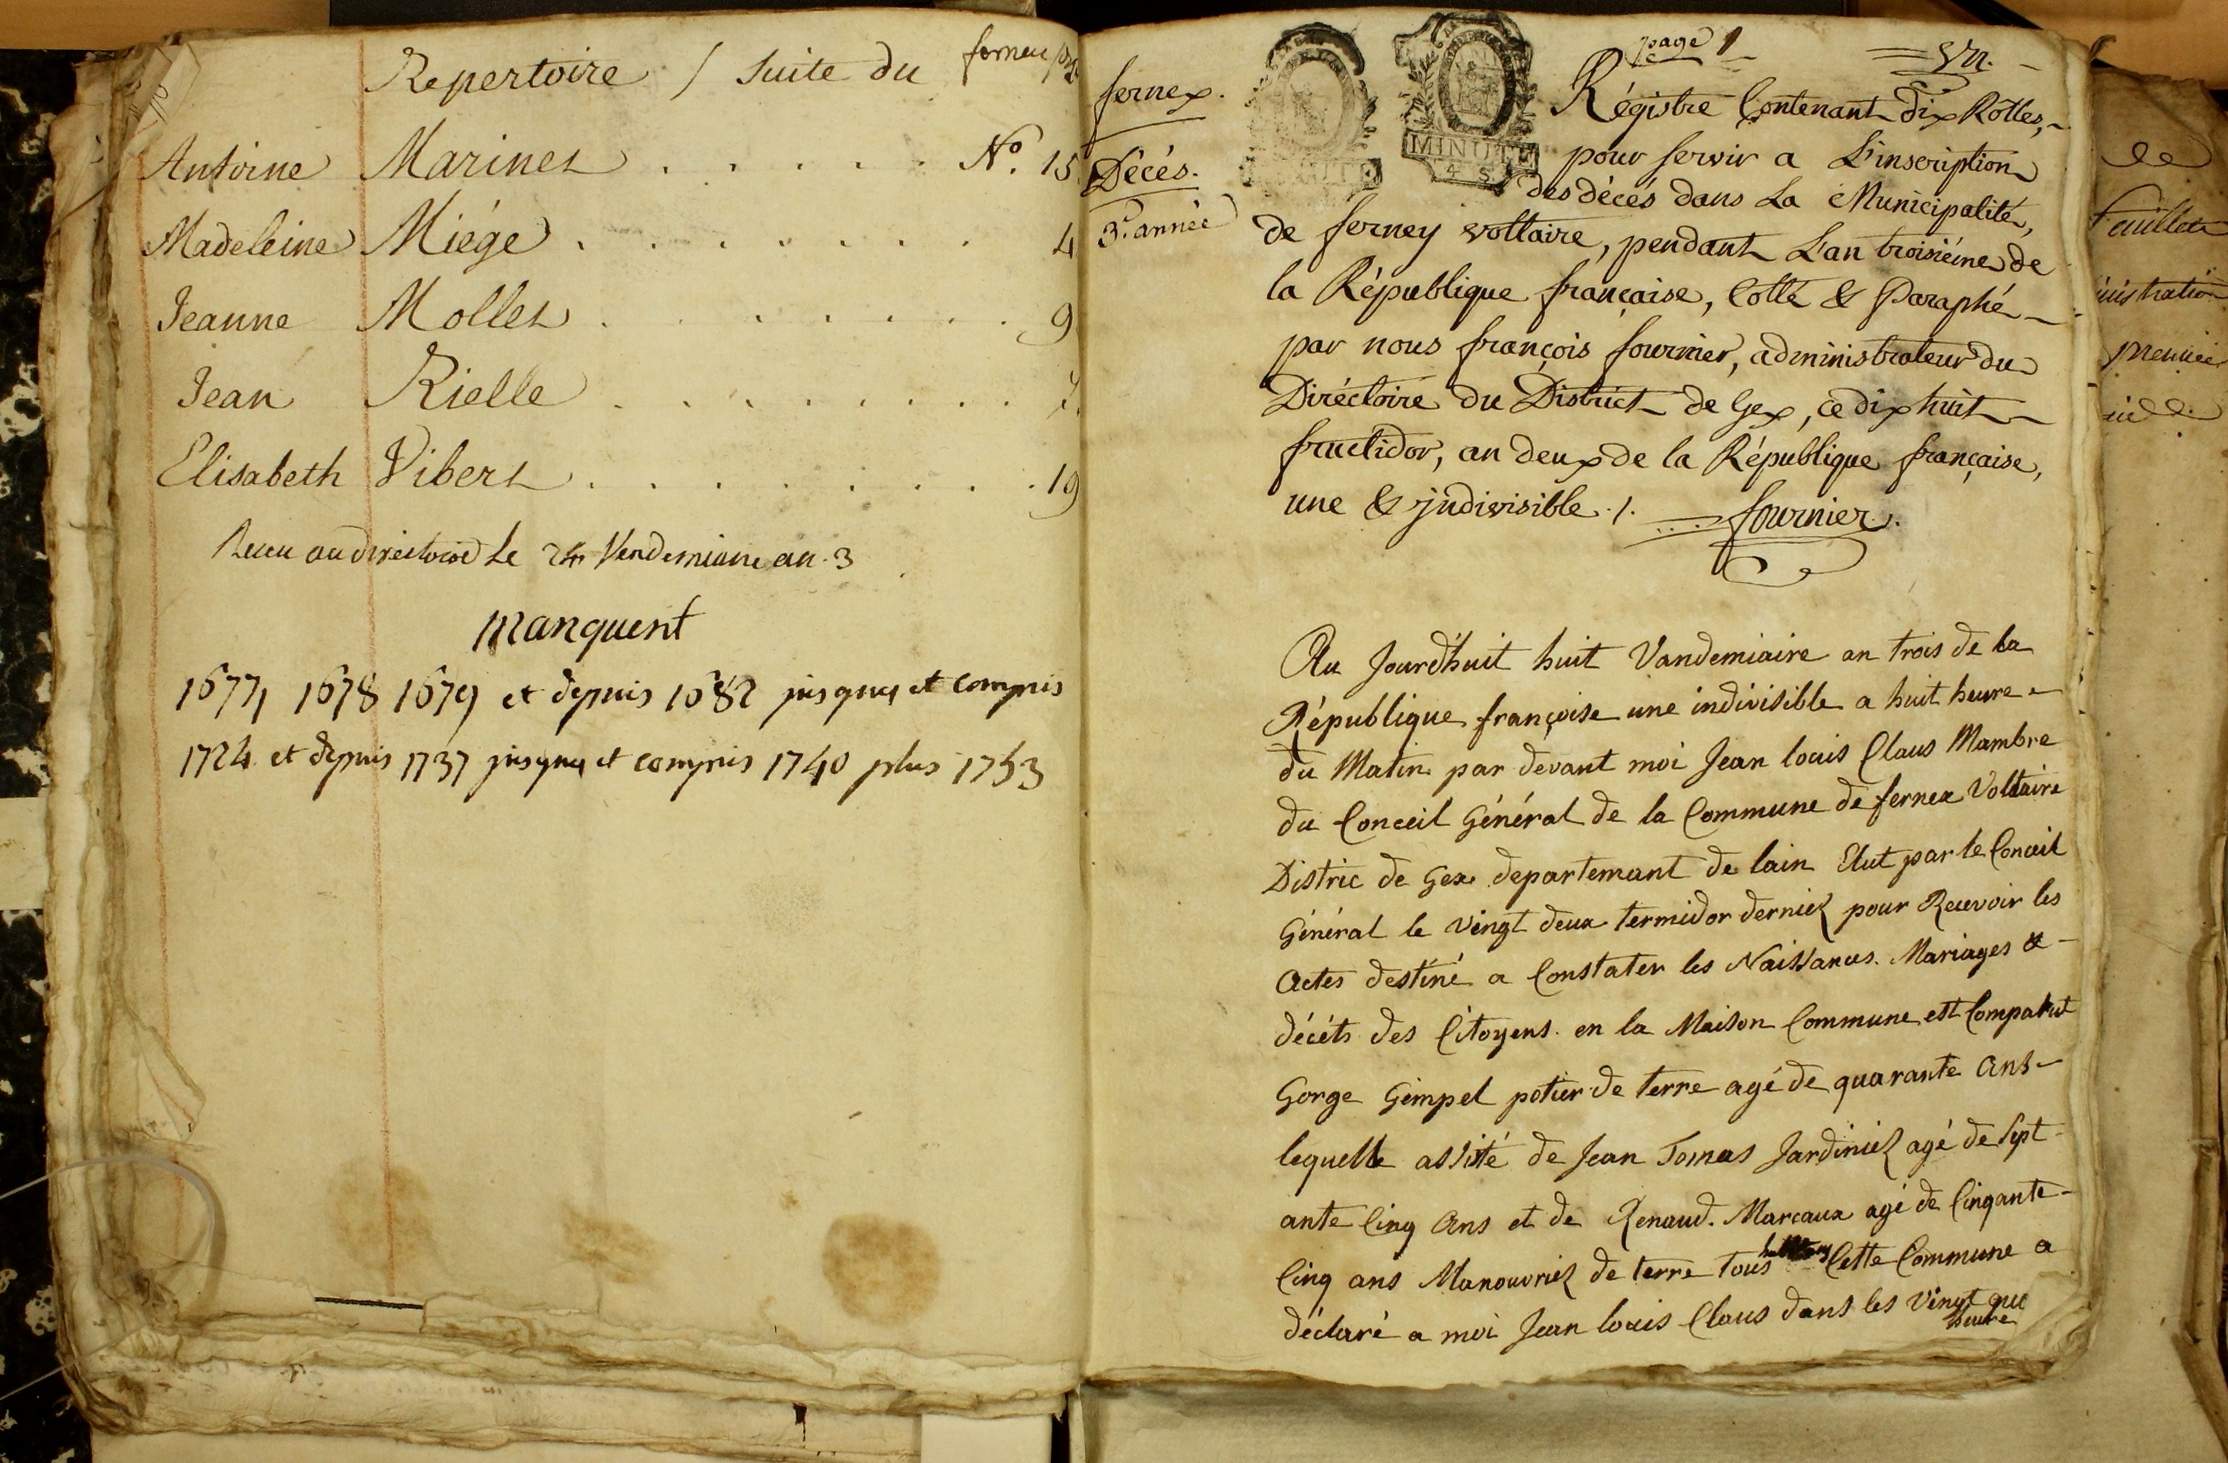 Repertoire / Suite du
Antoine Marinet . . . . . N.º 15
Madeleine Miége . . . . . . . 4
Jeanne Mollet . . . . . . . . 9
Jean Rielle . . . . . . . . 7.
Elisabeth Vibert . . . . . . . . . . 19
Receu au directoire Le 24 Vendemiaire an 3
manquent
1677, 1678 1679 et depuis 1682 jusques et compris
1724 et depuis 1737 jusques et compris 1740 plus 1753
fernex.
Décés.
3.e année
MINUTE
4 S
page 1
un.
Régistre Contenant dix Rolles,
pour servir a L'inscription
des décés dans La Municipalité,
de ferney voltaire, pendant L'an troisiéme de
la République française, Cotté & Paraphé
par nous françois fournier, administrateur du
Diréctoire du District de Gex, ce dix huit
fructidor, an deux de la République française,
une & indivisible ./. fournier.
Au Jourd'huit huit Vandemiaire an trois de la
République françoise une indivisible a huit heure
du Matin par devant moi Jean louis Claus Mambre
du Conceil Général de la Commune de fernex Voltaire
Distric de Gex departemant de lain Elut par le Conceil
Général le vingt deux termidor dernier pour Recevoir les
actes destiné a Constater les Naissances. Mariages &
décéts des Citoyens. en la Maison Commune est Comparut
Gorge Gimpel potier de terre agé de quarante ans
lequelle assisté de Jean Tomas Jardinier agé de Sept
ante Cinq ans et de Renaud. Marcaux agé de Cinqante
Cinq ans Manouvrier de terre tous Cette Commune a
déclaré a moi Jean louis Claus dans les Vingt que
heure